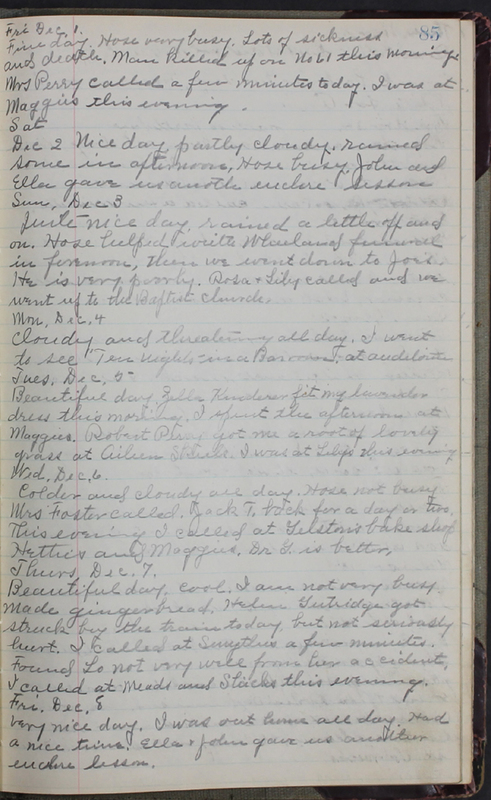 85
Fri Dec. 1.
Fine day. Hose very busy. Lots of sickness
and death. Man killed up on No 61 this morning.
Mrs Perry called a few minutes today. I was at
Maggies this evening.
Sat
Dec 2 Nice day, partly cloudy, rained
some in afternoon, Hose busy, John and
Ella gave us another euchre lesson
Sun, Dec 3
Quite nice day, rained a little off and
on. Hose helped funeral
in forenoon, then we went down to Joe's.
He is very poorly. Rosa & Lily called and we
went up to the Baptist Church.
Mon, Dec, 4
Cloudy and threatening all day. I went
to see "Ten Nights in a Barroom," at
Tues, Dec, 5
Beautiful day, fit my lavender
dress this morning. I spent the afternoon at
Maggies. Robert Perry got me a root of lovely
grass at I was at Lily's this evening
Wed, Dec, 6
Colder and cloudy all day. Hose not busy
Mrs Foster called. Jack T, back for a day or two.
This evening I called at bake shop
Hetties and Maggies. Dr G. is better,
Thurs Dec. 7.
Beautiful day, cool. I am not very busy.
made gingerbread. Helen Gutridge got
struck by the train today, but not seriously
hurt. I called at Smythes a few minutes.
Found Lo not very well from her accident,
I called at Meads and Slacks this evening.
Fri. Dec, 8
Very nice day. I was out home all day. Had
a nice time. Ella & John gave us another
euchre lesson.